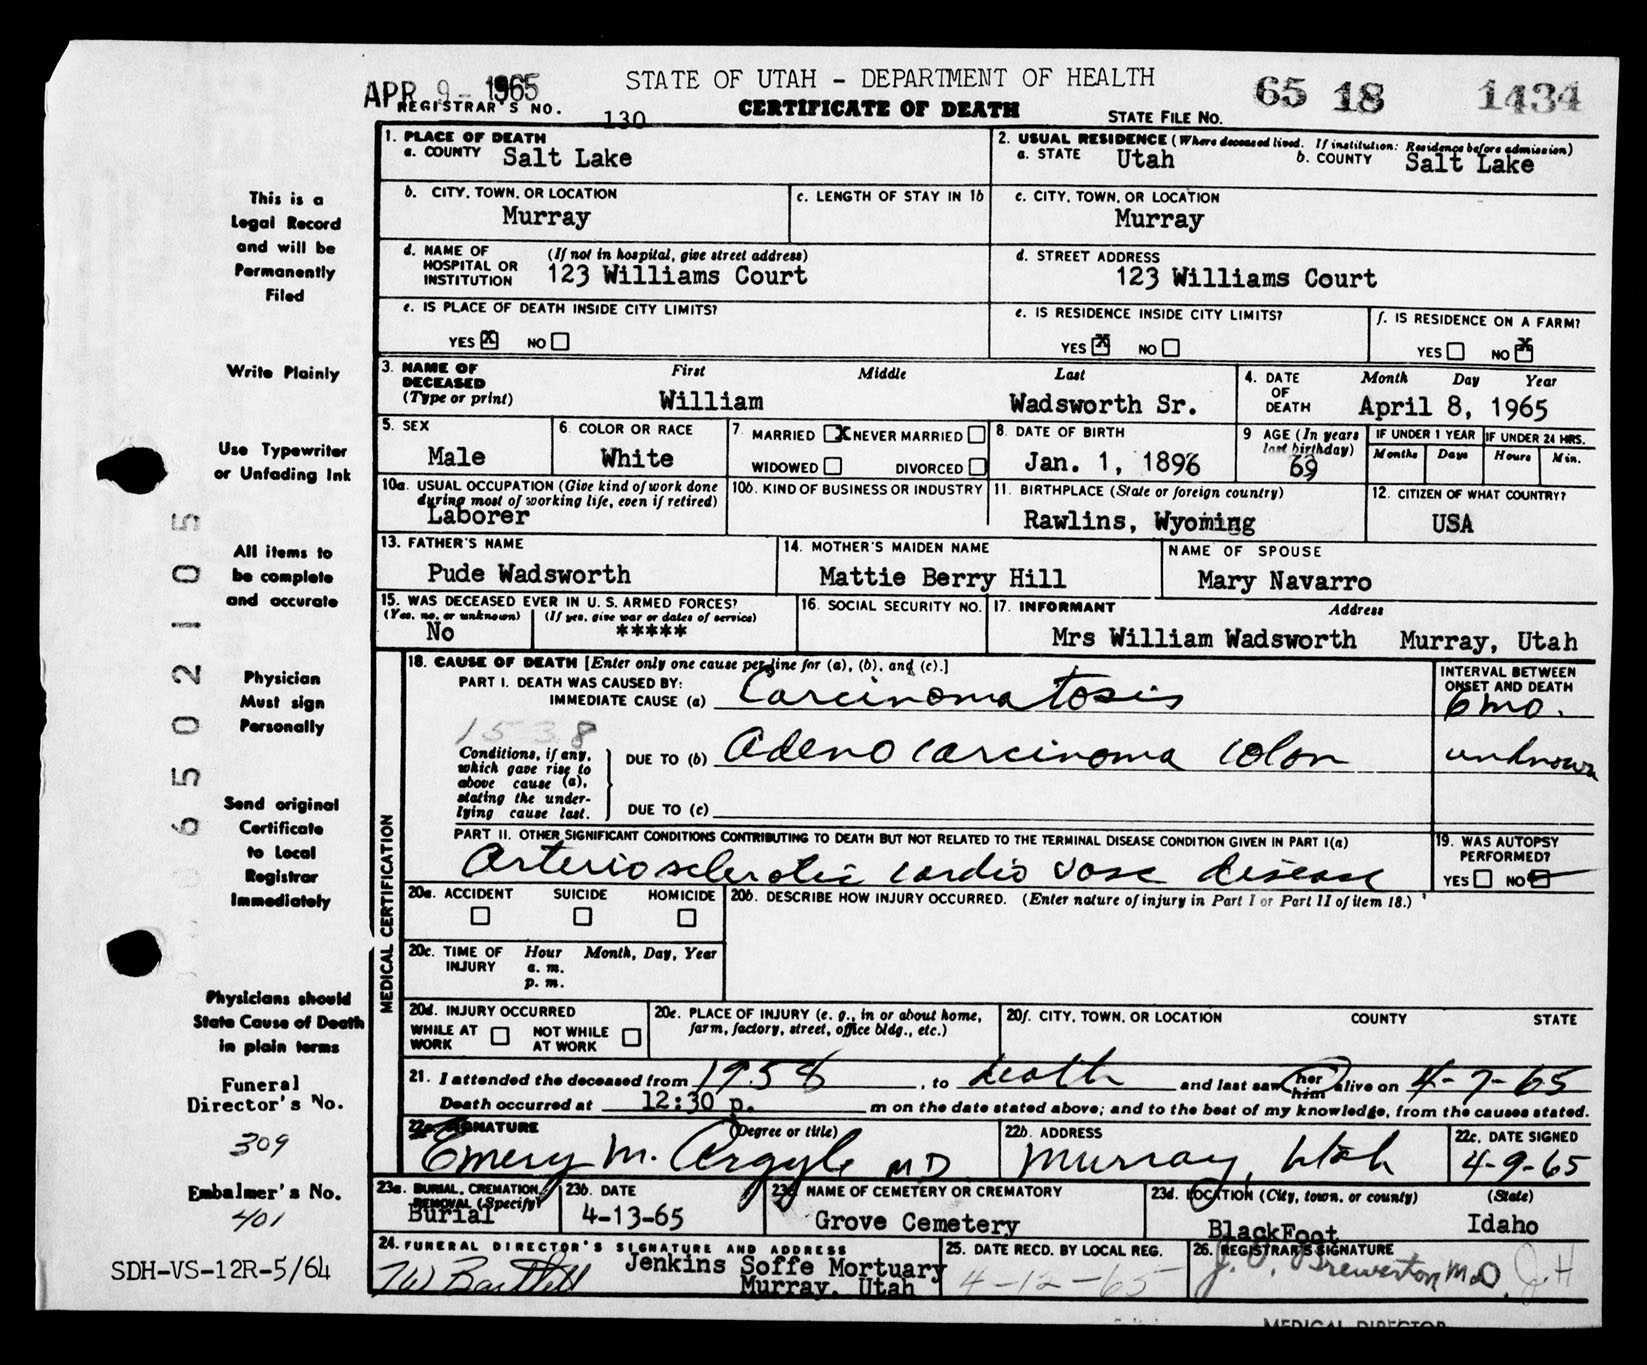 APR 9 - 1965
STATE OF UTAH - DEPARTMENT OF HEALTH
65 18 1434
REGISTRAR'S NO. 130
CERTIFICATE OF DEATH
STATE FILE NO.
1. PLACE OF DEATH
a. COUNTY Salt Lake
2. USUAL RESIDENCE (Where deceased lived. If institution: Residence before admission)
a. STATE Utah b. COUNTY Salt Lake
b. CITY, TOWN, OR LOCATION
Murray
c. LENGTH OF STAY IN 1b
c. CITY, TOWN, OR LOCATION
Murray
d. NAME OF HOSPITAL OR INSTITUTION (If not in hospital, give street address)
123 Williams Court
d. STREET ADDRESS
123 Williams Court
e. IS PLACE OF DEATH INSIDE CITY LIMITS?
YES X NO
e. IS RESIDENCE INSIDE CITY LIMITS?
YES X NO
f. IS RESIDENCE ON A FARM?
YES NO X
3. NAME OF DECEASED (Type or print)
First Middle Last
William Wadsworth Sr.
4. DATE OF DEATH Month Day Year
April 8, 1965
5. SEX
Male
6. COLOR OR RACE
White
7. MARRIED X NEVER MARRIED
WIDOWED DIVORCED
8. DATE OF BIRTH
Jan. 1, 1896
9 AGE (In years last birthday)
69
IF UNDER 1 YEAR IF UNDER 24 HRS.
Months Days Hours Min.
10a. USUAL OCCUPATION (Give kind of work done during most of working life, even if retired)
Laborer
10b. KIND OF BUSINESS OR INDUSTRY
11. BIRTHPLACE (State or foreign country)
Rawlins, Wyoming
12. CITIZEN OF WHAT COUNTRY?
USA
13. FATHER'S NAME
Pude Wadsworth
14. MOTHER'S MAIDEN NAME
Mattie Berry Hill
NAME OF SPOUSE
Mary Navarro
15. WAS DECEASED EVER IN U. S. ARMED FORCES?
(Yes, no, or unknown) (If yes, give war or dates of service)
No *****
16. SOCIAL SECURITY NO.
17. INFORMANT Address
Mrs William Wadsworth Murray, Utah
18. CAUSE OF DEATH [Enter only one cause per line for (a), (b), and (c).]
PART I. DEATH WAS CAUSED BY:
IMMEDIATE CAUSE (a) Carcinomatosis
INTERVAL BETWEEN ONSET AND DEATH
6 mo.
1538
Conditions, if any, which gave rise to above cause (a), stating the underlying cause last.
DUE TO (b) Adenocarcinoma colon
unknown
DUE TO (c)
PART II. OTHER SIGNIFICANT CONDITIONS CONTRIBUTING TO DEATH BUT NOT RELATED TO THE TERMINAL DISEASE CONDITION GIVEN IN PART I(a)
Arteriosclerotic cardio vasc disease
19. WAS AUTOPSY PERFORMED?
YES NO
MEDICAL CERTIFICATION
20a. ACCIDENT SUICIDE HOMICIDE
20b. DESCRIBE HOW INJURY OCCURRED. (Enter nature of injury in Part I or Part II of item 18.)
20c. TIME OF INJURY Hour Month, Day, Year
a. m.
p. m.
20d. INJURY OCCURRED
WHILE AT WORK NOT WHILE AT WORK
20e. PLACE OF INJURY (e. g., in or about home, farm, factory, street, office bldg., etc.)
20f. CITY, TOWN, OR LOCATION COUNTY STATE
21. I attended the deceased from 1958, to death and last saw her him alive on 4-7-65
Death occurred at 12:30 p. m on the date stated above; and to the best of my knowledge, from the causes stated.
22a. SIGNATURE (Degree or title)
Emery M. Argyle MD
22b. ADDRESS
Murray, Utah
22c. DATE SIGNED
4-9-65
23a. BURIAL, CREMATION, REMOVAL (Specify)
Burial
23b. DATE
4-13-65
23c. NAME OF CEMETERY OR CREMATORY
Grove Cemetery
23d. LOCATION (City, town, or county) (State)
BlackFoot Idaho
24. FUNERAL DIRECTOR'S SIGNATURE AND ADDRESS
Jenkins Soffe Mortuary
Murray, Utah
25. DATE RECD. BY LOCAL REG.
4-12-65
26. REGISTRAR'S SIGNATURE
Brewerton M.D. J.H
MEDICAL DIRECTOR
This is a
Legal Record
and will be
Permanently
Filed
Write Plainly
Use Typewriter
or Unfading Ink
All items to
be complete
and accurate
Physician
Must sign
Personally
Send original
Certificate
to Local
Registrar
Immediately
Physicians should
State Cause of Death
in plain terms
Funeral
Director's No.
309
Embalmer's No.
401
SDH-VS-12R-5/64